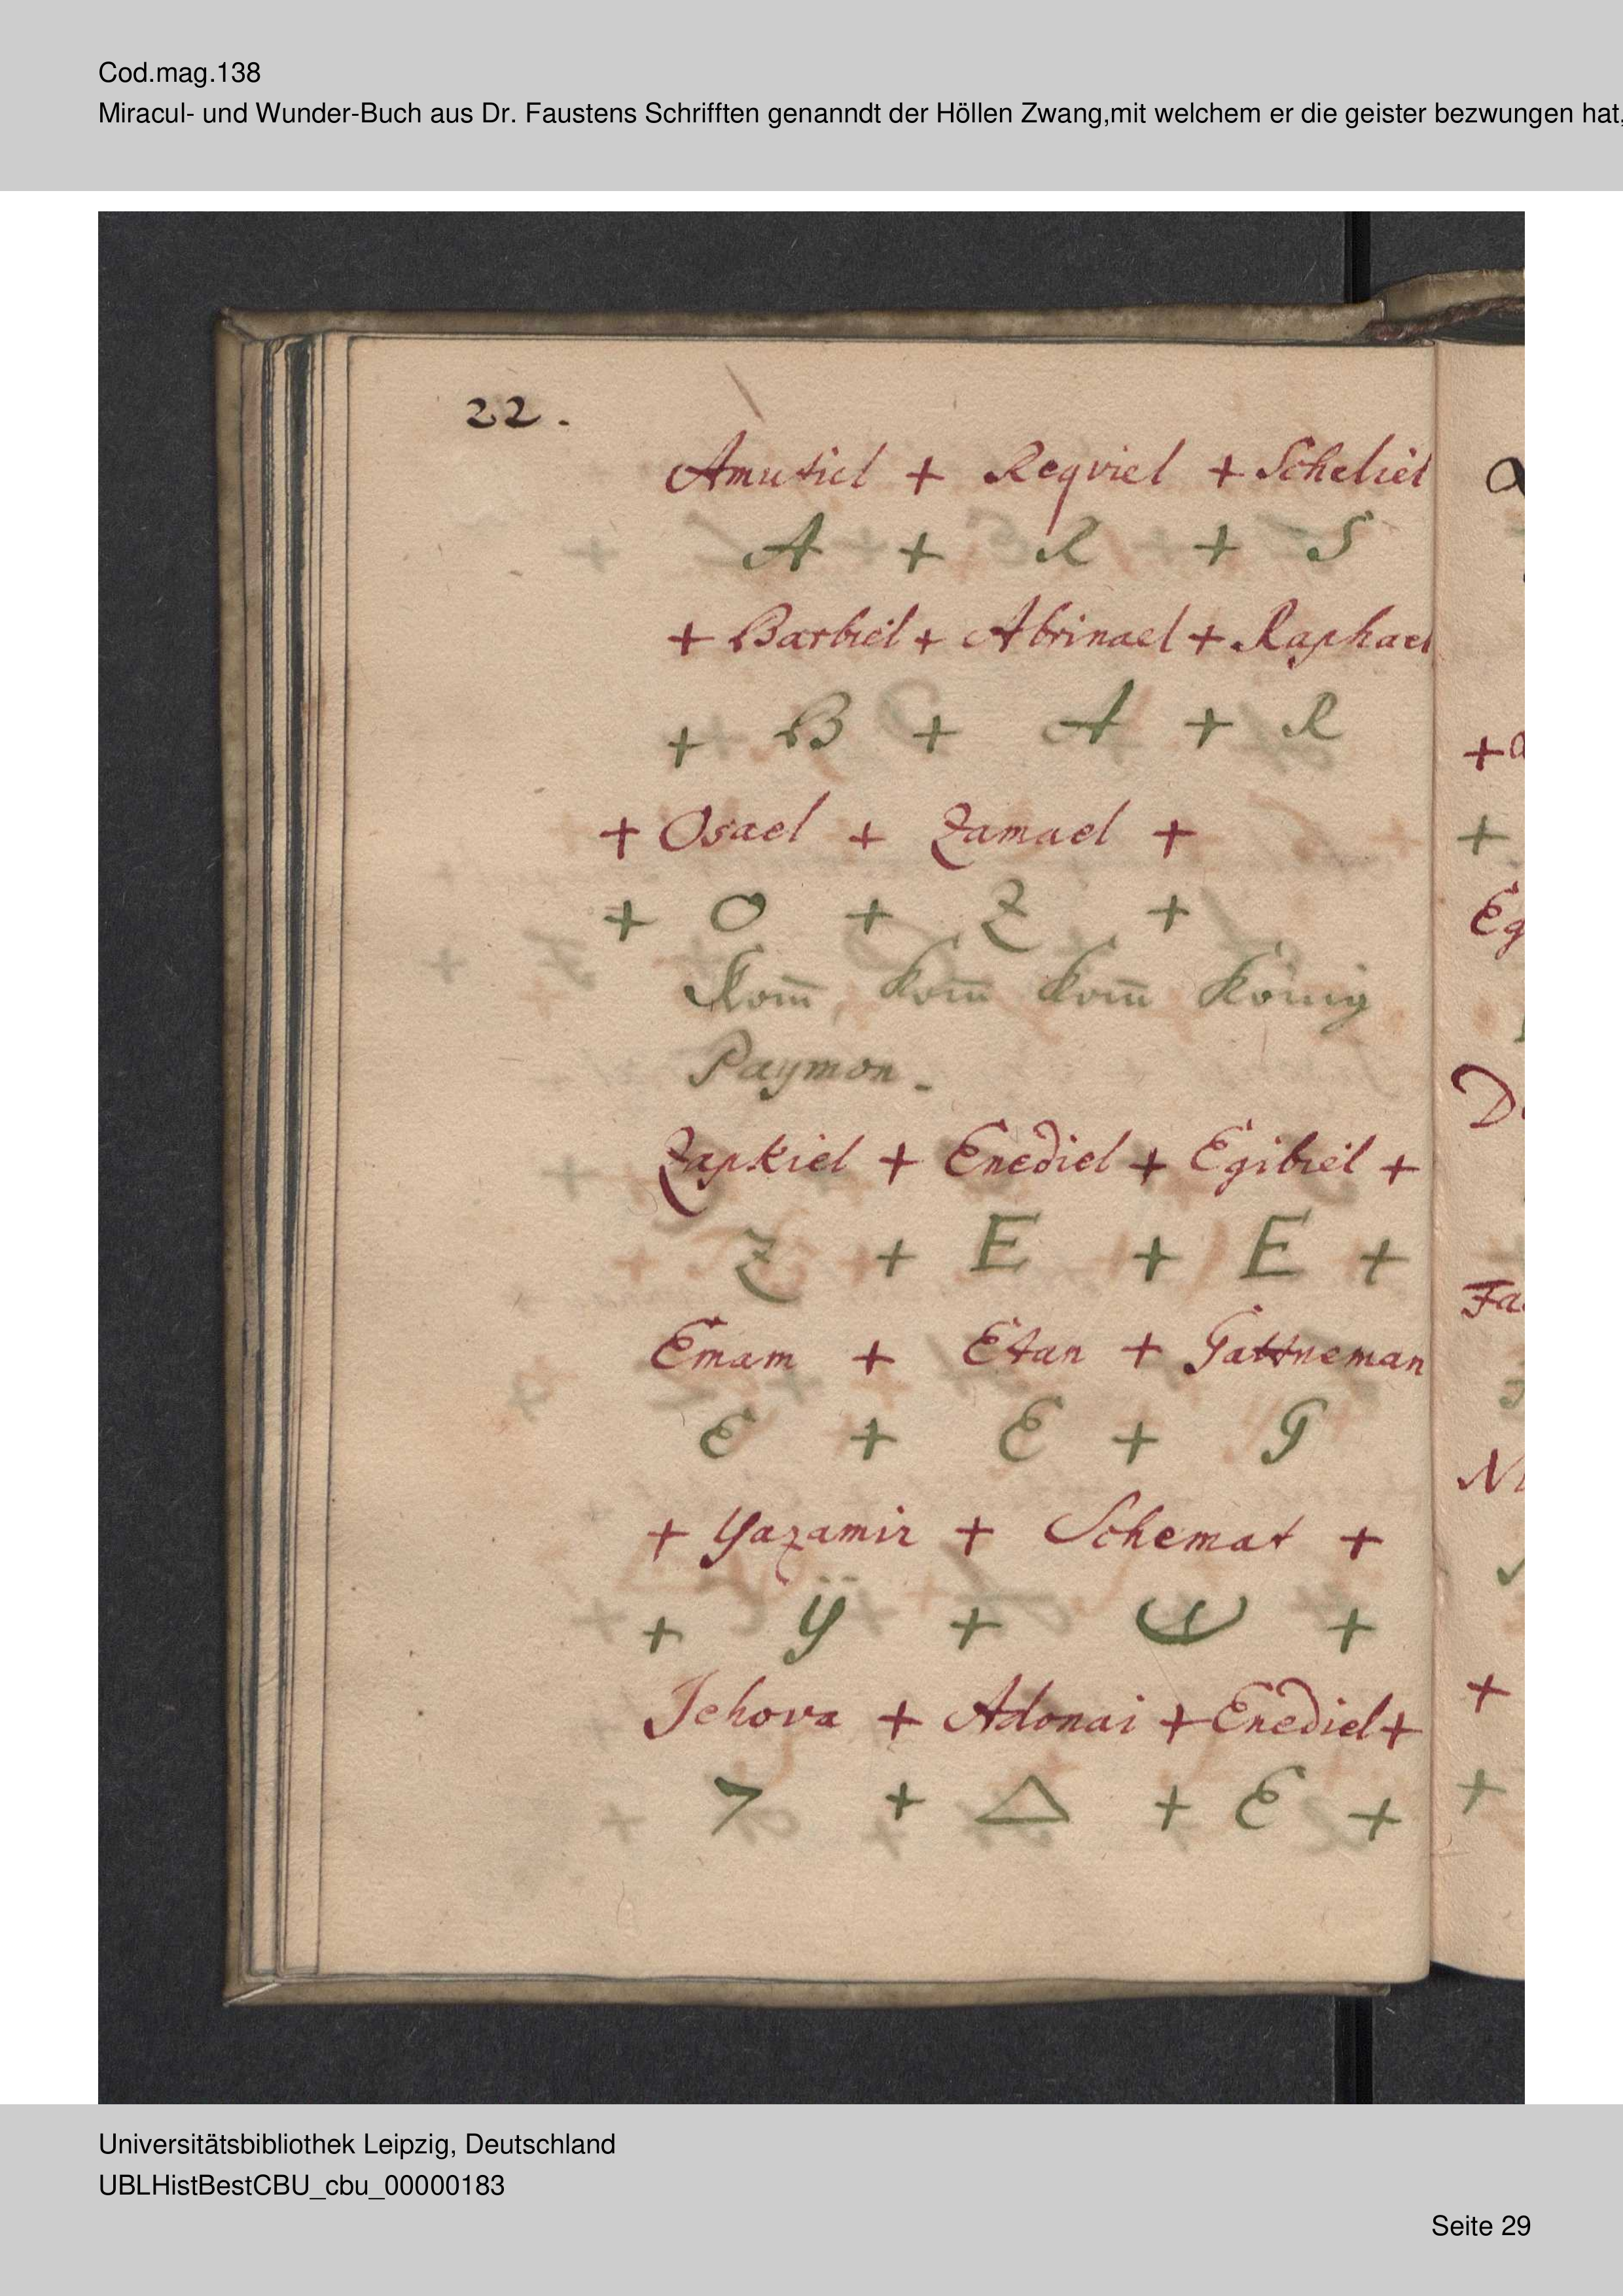 Cod.mag.138
Miracul- und Wunder-Buch aus Dr. Faustens Schrifften genanndt der Höllen Zwang,mit welchem er die geister bezwungen hat,
22.
Amutiel + Reqviel + Scheliel
A + R + S
+ Barbiel + Abrinael + Raphael
+ B + A + R
+ Osael + Zamael +
+ O + Z +
Kom̄, kom̄ kom̄ König
Paymon.
Zapkiel + Enediel + Egibiel +
Z + E + E +
Emam + Etan + Gattneman
E + E + G
+ Yazamir + Schemat +
+ ÿ + +
Jehova + Adonai + Enediel +
+ Δ + E +
Universitätsbibliothek Leipzig, Deutschland
UBLHistBestCBU_cbu_00000183
Seite 29